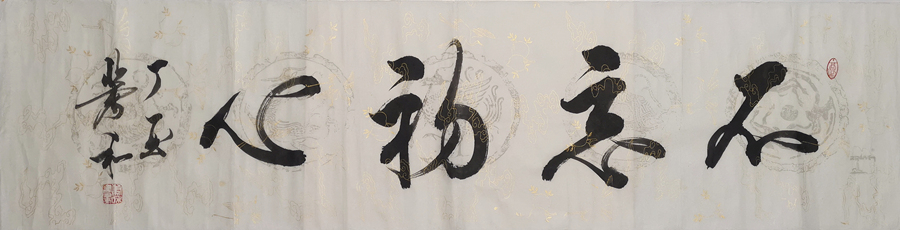 不忘初心
丁亥